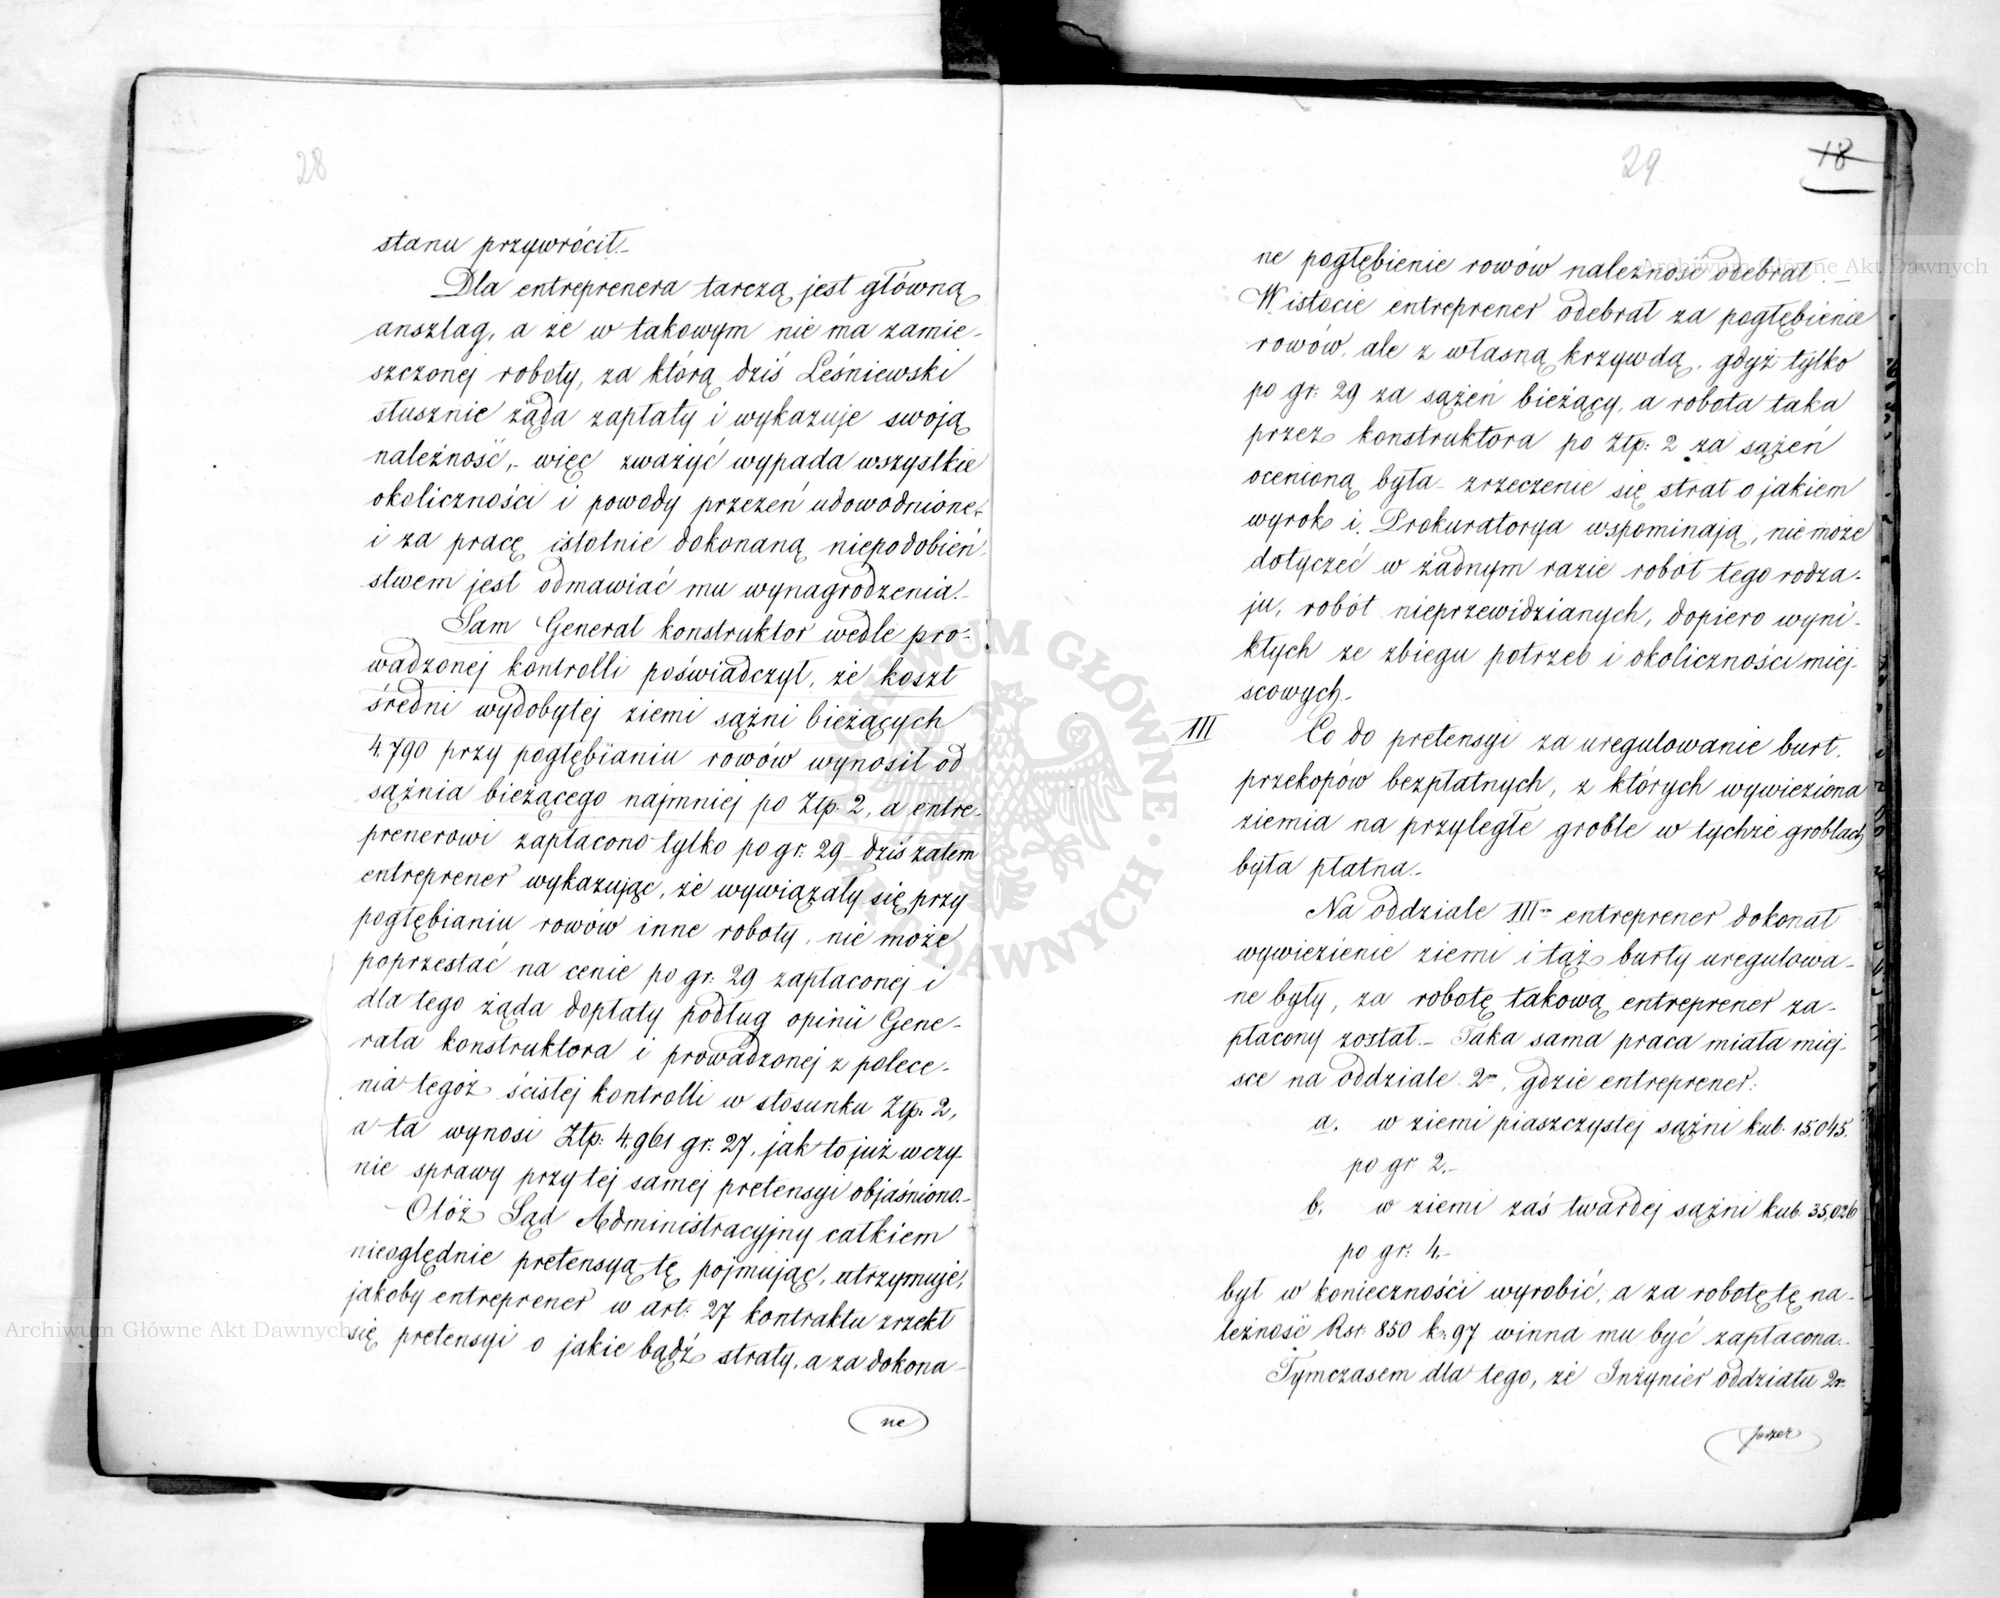 28
stanu przywrócił.–
Dla entreprenera tarczą jest główną
anszlag, a że w takowym nie ma zamie-
szczonej roboty, za którą dziś Leśniewski
słusznie żąda zapłaty i wykazuje swoją
należność,– więc zważyć wypada wszystkie
okoliczności i powody przezeń udowodnione
i za pracę istotnie dokonaną niepodobień-
stwem jest odmawiać mu wynagrodzenia.–
Sam Generał konstruktor wedle pro-
wadzonej kontrolli poświadczył, że koszt
średni wydobytej ziemi sążni bieżących
4.790 przy pogłębianiu rowów wynosił od
sążnia bieżącego najmniej po Złp. 2, a entre-
prenerowi zapłacono tylko po gr: 29– dziś zatem
entreprener wykazując, że wywiązały się przy
pogłębianiu rowów inne roboty, nie może
poprzestać na cenie po gr: 29 zapłaconej i
dla tego żąda dopłaty podług opinii Gene-
rała konstruktora i prowadzonej z polece-
nia tegoż ścisłej kontrolli w stosunku Złp. 2,
a ta wynosi Złp: 4,961 gr: 27, jak to już w czy-
nie sprawy przy tej samej pretensyi objaśniono.–
Otóż Sąd Administracyjny całkiem
nieoględnie pretensyą tę pojmując, utrzymuje,
jakoby entreprener w art: 27 kontraktu zrzekł
się pretensyi o jakie bądź straty, a za dokona-
ne
29
18
ne pogłębienie rowów należność odebrał.–
W istocie entreprener odebrał za pogłębienie
rowów, ale z własną krzywdą, gdyż tylko
po gr: 29 za sążeń bieżący, a robota taka
przez konstruktora po Złp: 2 za sążeń
ocenioną była– zrzeczenie się strat o jakiem
wyrok i Prokuratorya wspominają, nie może
dotyczeć w żadnym razie robót tego rodza-
ju, robót nieprzewidzianych, dopiero wyni-
kłych ze zbiegu potrzeb i okoliczności miej-
scowych.–
III Co do pretensyi za uregulowanie burt.
przekopów bezpłatnych, z których wywieziona
ziemia na przyległe groble w tychże groblach
była płatna.–
Na oddziale III^m entreprener dokonał
wywiezienie ziemi i tąż burty uregulowa-
ne były, za robotę takową entreprener za-
płacony został.– Taka sama praca miała miej-
sce na oddziale 2^m, gdzie entreprener:
a. w ziemi piaszczystej sążni kub. 15,045.
po gr 2.–
b. w ziemi zaś twardej sążni kub. 35,026
po gr: 4.–
był w konieczności wyrobić, a za robotę tę na-
leżność Rsr. 850 k: 97 winna mu być zapłacona.–
Tymczasem dla tego, że Inżynier oddziału 2^o
przez
Archiwum Główne Akt Dawnych
Archiwum Główne Akt Dawnych
ARCHIWUM GŁÓWNE AKT DAWNYCH